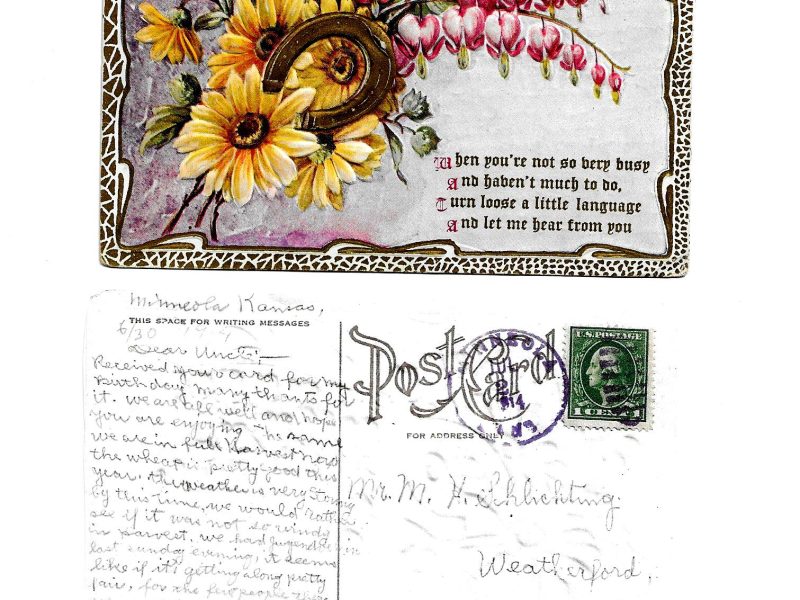 When you're not so very busy
And haven't much to do,
Turn loose a little language
And let me hear from you
Minneola Kansas,
THIS SPACE FOR WRITING MESSAGES
6/30
Dear Uncle;—
Received your card for my
Birthday, many thanks for
it. we are all well and hope
you are enjoying the same
we are in full Harvest now
the wheat is pretty good this
year. the weather is very stormy
by this time, we would rather
see if it was not so windy
in Harvest. we had
last sunday evening, it seems
like if it's getting along pretty
fair, for the few people
Post Card
FOR ADDRESS ONLY
MINNEOLA
1914
U.S. POSTAGE
1 CENT 1
Mr. M. H. Schlichting.
Weatherford.